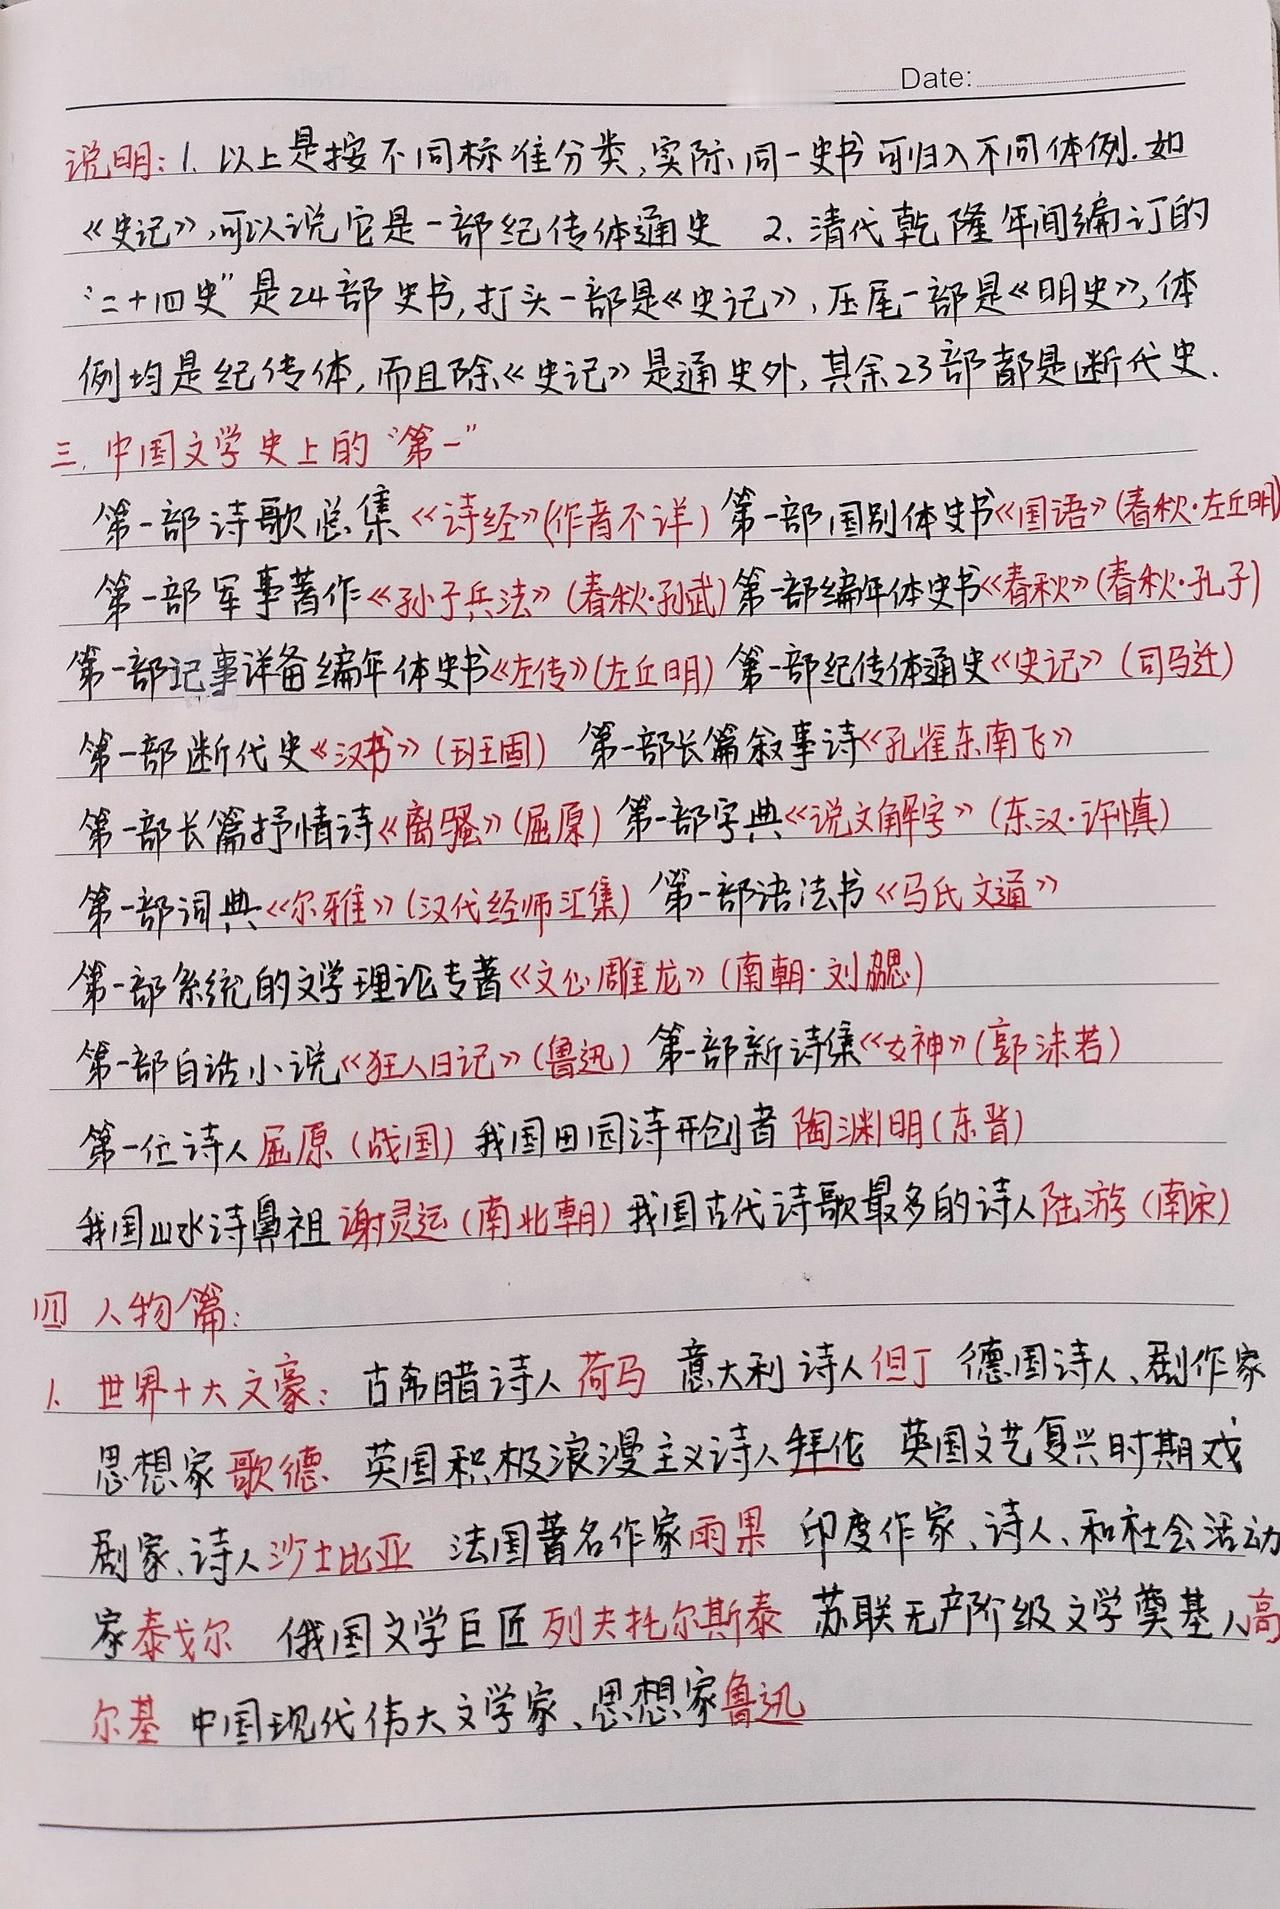 Date:
说明:1. 以上是按不同标准分类,实际同一史书可归入不同体例.如
《史记》,可以说它是一部纪传体通史 2. 清代乾隆年间编订的
"二十四史"是24部史书,打头一部是《史记》,压尾一部是《明史》,体
例均是纪传体,而且除《史记》是通史外,其余23部都是断代史.
三.中国文学史上的"第一"
第一部诗歌总集《诗经》(作者不详) 第一部国别体史书《国语》(春秋·左丘明)
第一部军事著作《孙子兵法》(春秋·孙武) 第一部编年体史书《春秋》(春秋·孔子)
第一部记事详备编年体史书《左传》(左丘明) 第一部纪传体通史《史记》(司马迁)
第一部断代史《汉书》(班固) 第一部长篇叙事诗《孔雀东南飞》
第一部长篇抒情诗《离骚》(屈原) 第一部字典《说文解字》(东汉·许慎)
第一部词典《尔雅》(汉代经师汇集) 第一部语法书《马氏文通》
第一部系统的文学理论专著《文心雕龙》(南朝·刘勰)
第一部白话小说《狂人日记》(鲁迅) 第一部新诗集《女神》(郭沫若)
第一位诗人屈原(战国) 我国田园诗开创者 陶渊明(东晋)
我国山水诗鼻祖谢灵运(南北朝) 我国古代诗歌最多的诗人陆游(南宋)
四 人物篇:
1. 世界十大文豪: 古希腊诗人荷马 意大利诗人但丁 德国诗人、剧作家
思想家歌德 英国积极浪漫主义诗人拜伦 英国文艺复兴时期戏
剧家、诗人沙士比亚 法国著名作家雨果 印度作家、诗人、和社会活动
家泰戈尔 俄国文学巨匠列夫托尔斯泰 苏联无产阶级文学奠基人高
尔基 中国现代伟大文学家、思想家鲁迅